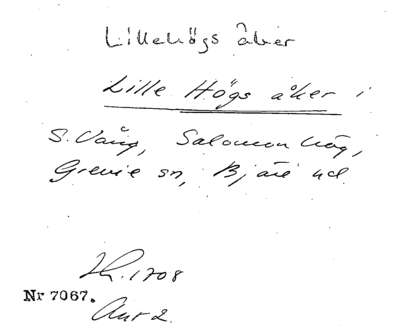 Lillehögs åker
Lille Högs åker i
S. Vång, Salomonhög,
Grevie sn, Bjäre hd.
Lh. 1708
Nr 7067.
Akt 2.